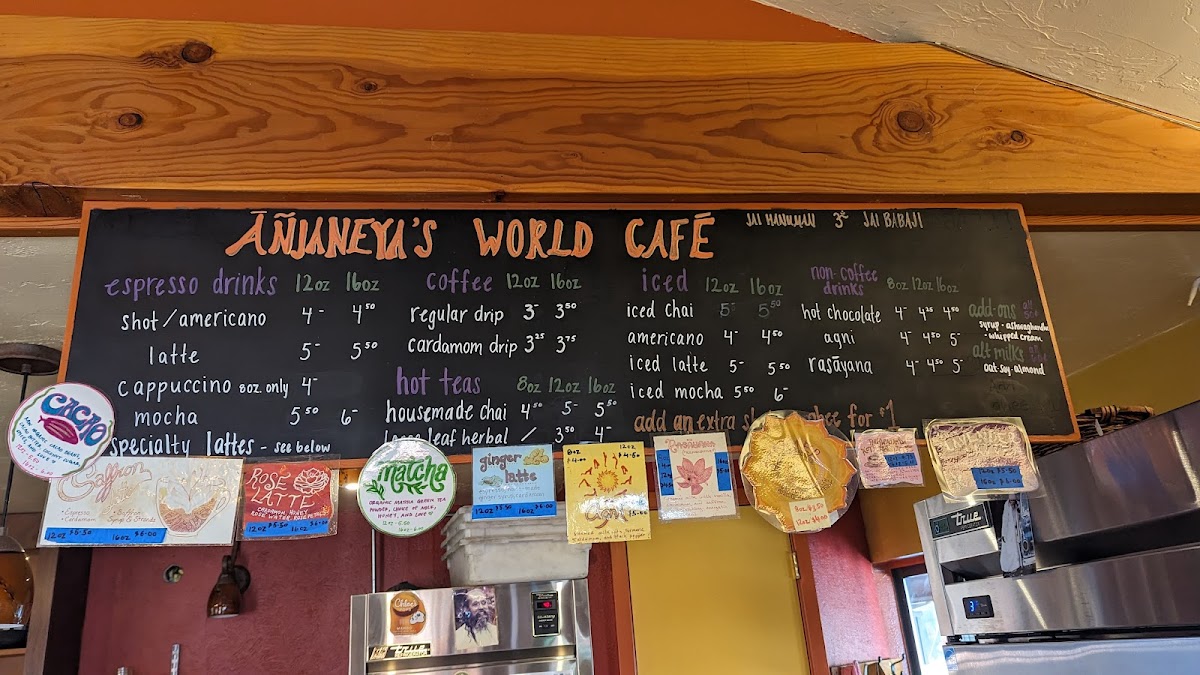 ĀÑJANEYA'S WORLD CAFÉ
JAI HANUMAN JAI BABAJI
espresso drinks 12oz 16oz
shot/americano 4- 4⁵⁰
latte 5- 5⁵⁰
cappuccino 8oz. only 4-
mocha 5⁵⁰ 6-
specialty lattes - see below
coffee 12oz 16oz
regular drip 3- 3⁵⁰
cardamom drip 3²⁵ 3⁷⁵
hot teas 8oz 12oz 16oz
housemade chai 4⁵⁰ 5- 5⁵⁰
leaf herbal / 3⁵⁰ 4-
iced 12oz 16oz
iced chai 5- 5⁵⁰
americano 4- 4⁵⁰
iced latte 5- 5⁵⁰
iced mocha 5⁵⁰ 6-
add an extra for $1
non-coffee
drinks 8oz 12oz 16oz
hot chocolate 4- 4²⁵ 4⁵⁰
agni 4- 4⁵⁰ 5-
rasāyana 4- 4⁵⁰ 5-
add-ons
syrup · ashwagandha
· whipped cream
alt milks
oat·soy·almond
CACAO
Saffron
12oz $5.50 16oz $6.00
ROSE
LATTE
CARDAMOM, HONEY,
ROSE WATER, ROSE PETALS
12oz $5.50 16oz $6.00
matcha
ORGANIC MATCHA GREEN TEA
POWDER, CHOICE OF MILK,
HONEY, AND LOVE
ginger
latte
12oz 16oz
8oz 12oz
$4.00 $4.50
$5.00
Chloe's
True
True